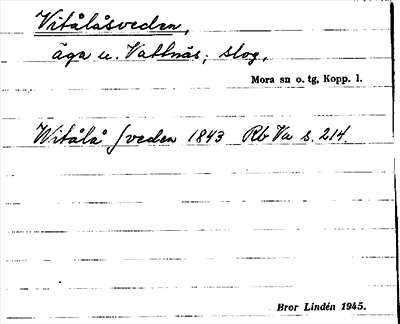 Vitålåsveden,
äga u. Vattnäs; skog.
Mora sn o. tg, Kopp. l.
Witålå sveden 1843 Rb Va s. 214.
Bror Lindén 1945.